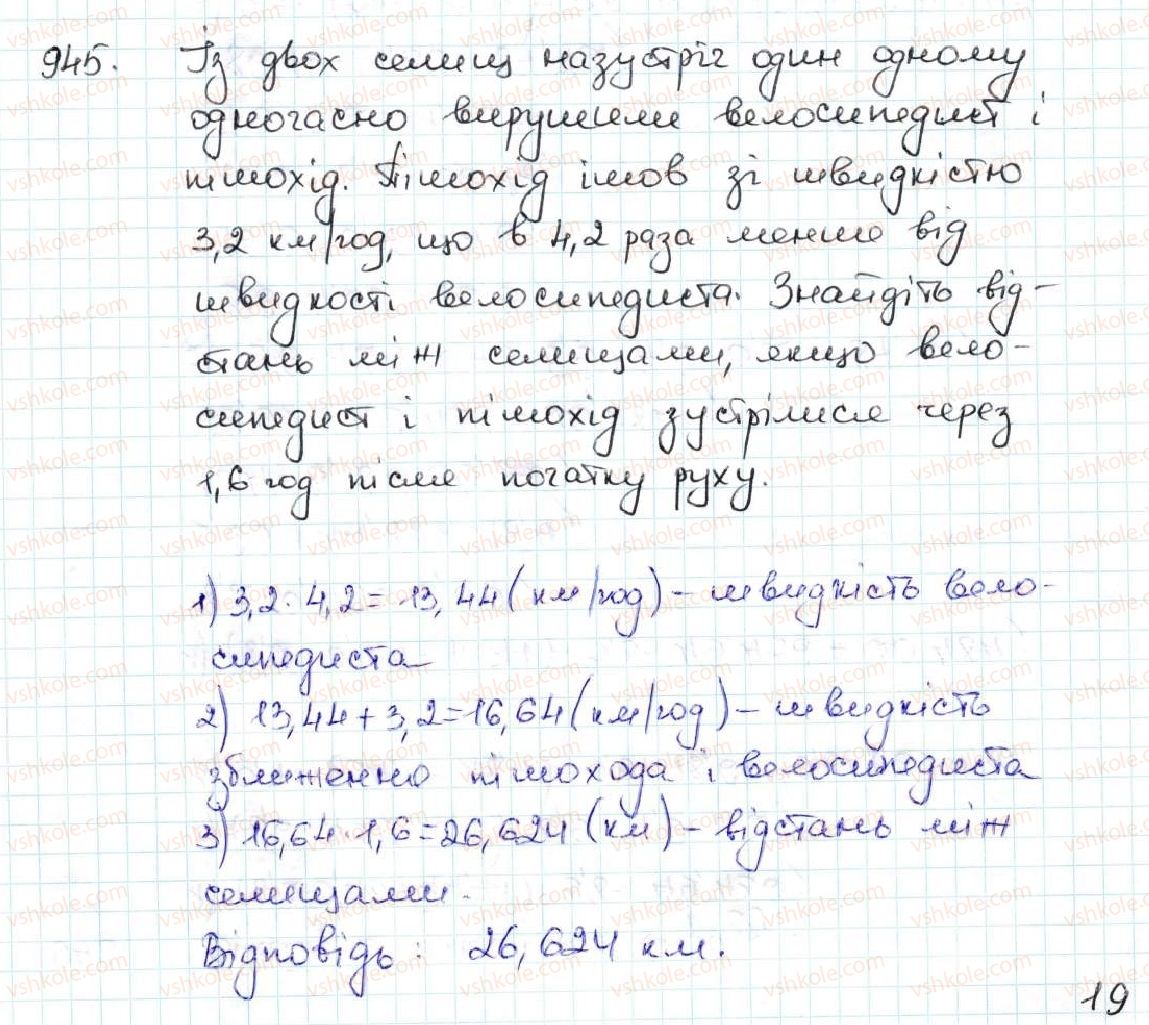 945. Із двох селищ назустріч один одному
одночасно вирушили велосипедист і
пішохід. Пішохід ішов зі швидкістю
3,2 км/год, що в 4,2 раза менше від
швидкості велосипедиста. Знайдіть від-
стань між селищами, якщо вело-
сипедист і пішохід зустрілися через
1,6 год після початку руху.
1) 3,2 · 4,2 = 13,44 (км/год) – швидкість вело-
сипедиста
2) 13,44 + 3,2 = 16,64 (км/год) – швидкість
зближення пішохода і велосипедиста
3) 16,64 · 1,6 = 26,624 (км) – відстань між
селищами.
Відповідь : 26,624 км.
19